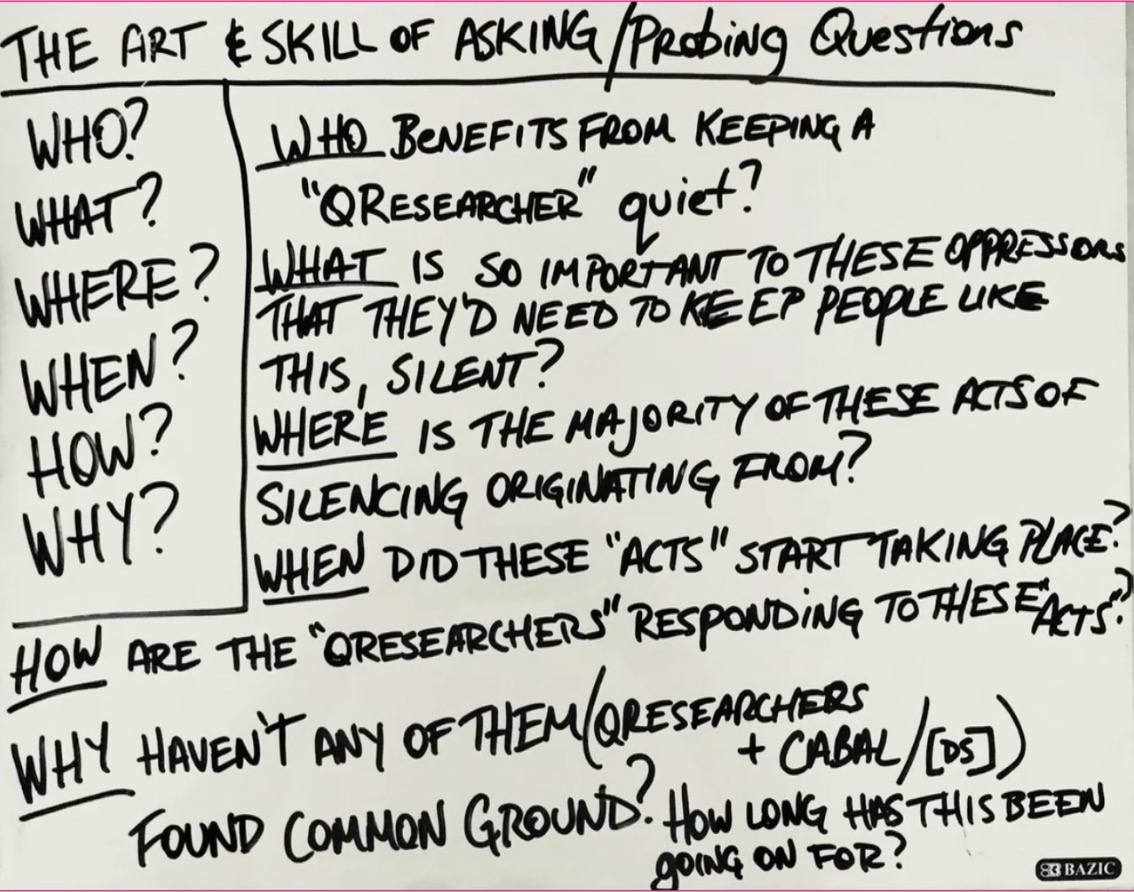 THE ART & SKILL OF ASKING/Probing Questions
WHO?
WHAT?
WHERE?
WHEN?
HOW?
WHY?
WHO BENEFITS FROM KEEPING A
"QRESEARCHER" quiet?
WHAT IS SO IMPORTANT TO THESE OPPRESSORS
THAT THEY'D NEED TO KEEP PEOPLE LIKE
THIS, SILENT?
WHERE IS THE MAJORITY OF THESE ACTS OF
SILENCING ORIGINATING FROM?
WHEN DID THESE "ACTS" START TAKING PLACE?
HOW ARE THE "QRESEARCHERS" RESPONDING TO THESE "ACTS"?
WHY HAVEN'T ANY OF THEM (QRESEARCHERS
+ CABAL/[DS])
FOUND COMMON GROUND? HOW LONG HAS THIS BEEN
GOING ON FOR?
BAZIC